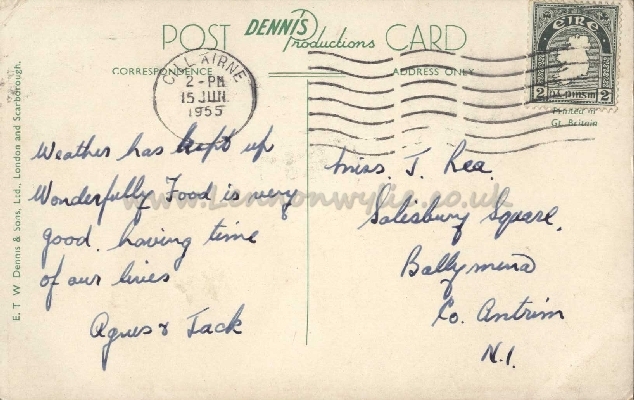 POST DENNIS Productions CARD
CORRESPONDENCE ADDRESS ONLY
CILL AIRNE
2-PM
15 JUN.
1955
EIRE
2 dá pinsin 2
Printed in
Gt. Britain
E. T. W. Dennis & Sons, Ltd., London and Scarborough.
Weather has kept up
Wonderfully Food is very
good. having time
of our lives
Agnes & Jack
Miss. J. Rea.
Salisbury Square,
Ballymena
Co. Antrim
N.I.
www.Lennonwylie.co.uk